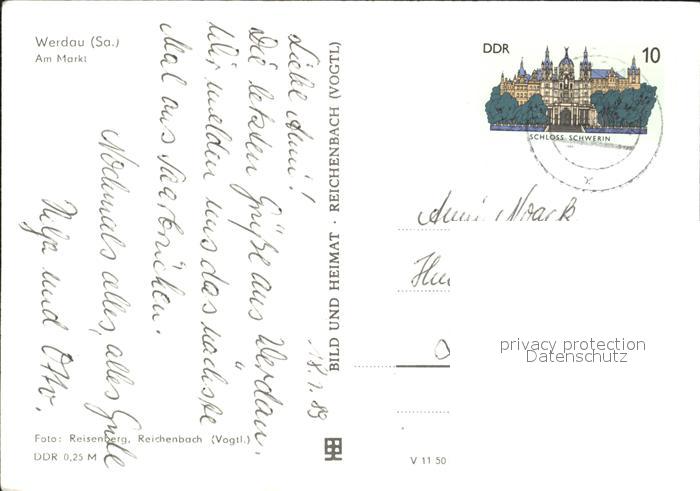 Werdau (Sa.)
Am Markt
18.7.89
Liebe Anni!
Die letzten Grüße aus Werdau.
Wir melden uns das nächste
Mal aus Saarbrücken.
Nochmals alles, alles Gute
und Otto.
BILD UND HEIMAT · REICHENBACH (VOGTL)
DDR
10
SCHLOSS SCHWERIN
Anni Noack
privacy protection
Datenschutz
Foto: Reisenberg, Reichenbach (Vogtl.)
DDR 0,25 M
V 11 50